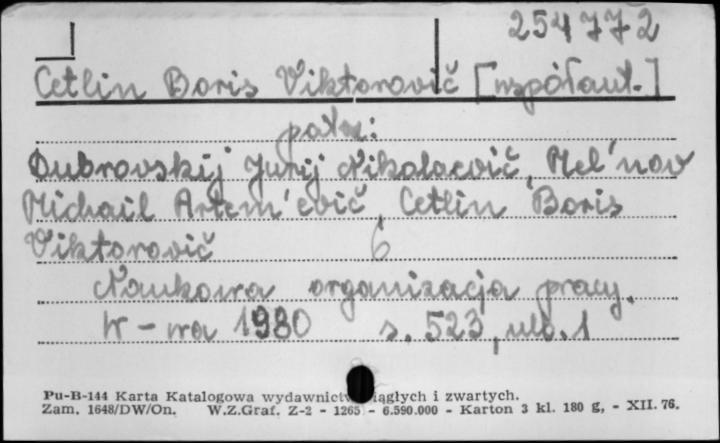 254772
Cetlin Boris Viktorovič [współaut.]
patrz:
Dubrovskij Jurij Nikolaevič, Mel'nov
Michail Artem'evič, Cetlin Boris
Viktorovič 6
Naukowa organizacja pracy.
W-wa 1980 s. 523, nlb. 1
Pu-B-144 Karta Katalogowa wydawnictw ciągłych i zwartych.
Zam. 1648/DW/On. W.Z.Graf. Z-2 - 1265 - 6.590.000 - Karton 3 kl. 180 g, - XII. 76.